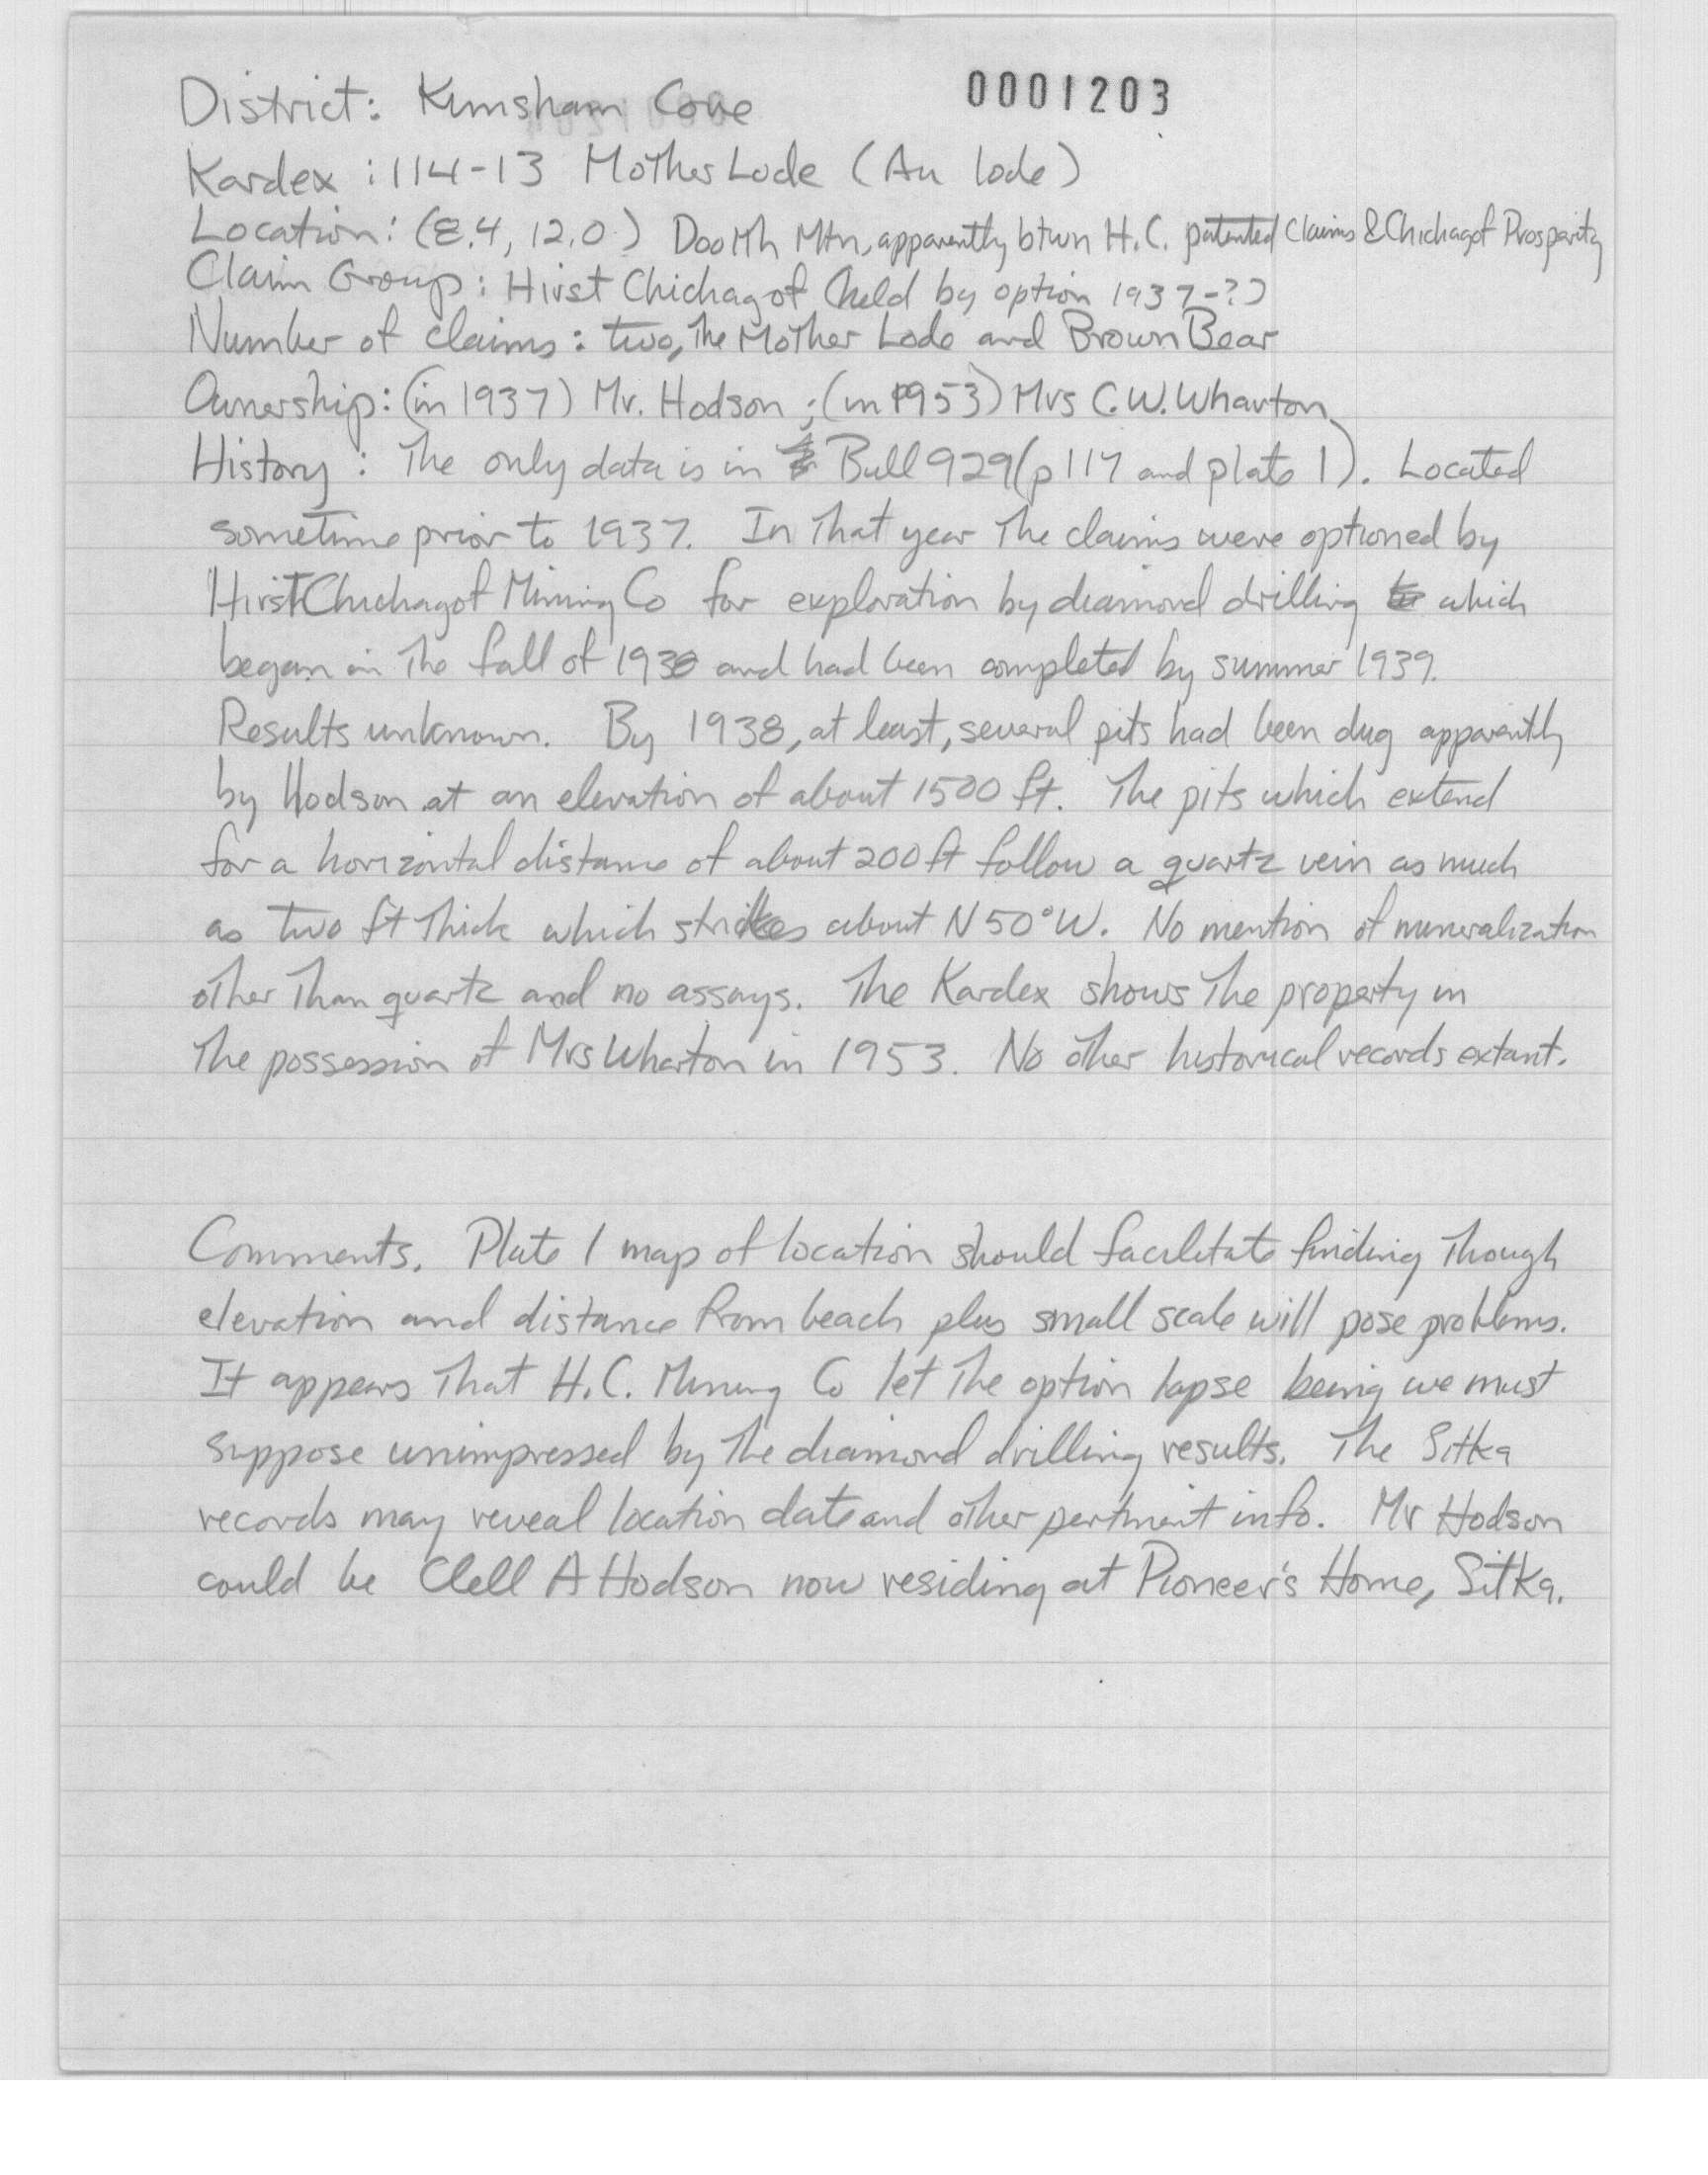 0001203
District: Kimsham Cove
Kardex : 114-13 Mother Lode (Au lode)
Location: (8.4, 12.0) Doolth Mtn, apparently btwn H.C. patented claims & Chichagof Prosperity
Claim Group: Hirst Chichagof (held by option 1937-?)
Number of claims: two, the Mother Lode and Brown Bear
Ownership: (in 1937) Mr. Hodson ; (in 1953) Mrs C.W. Wharton
History : The only data is in Bull 929 (p 117 and plate 1). Located
sometime prior to 1937. In that year the claims were optioned by
Hirst Chichagof Mining Co for exploration by diamond drilling which
began in the fall of 1938 and had been completed by summer 1939.
Results unknown. By 1938, at least, several pits had been dug apparently
by Hodson at an elevation of about 1500 ft. The pits which extend
for a horizontal distance of about 200 ft follow a quartz vein as much
as two ft thick which strikes about N 50°W. No mention of mineralization
other than quartz and no assays. The Kardex shows the property in
the possession of Mrs Wharton in 1953. No other historical records extant.
Comments. Plate 1 map of location should facilitate finding though
elevation and distance from beach plus small scale will pose problems.
It appears that H.C. Mining Co let the option lapse being we must
suppose unimpressed by the diamond drilling results. The Sitka
records may reveal location date and other pertinent info. Mr Hodson
could be Clell A Hodson now residing at Pioneer's Home, Sitka.